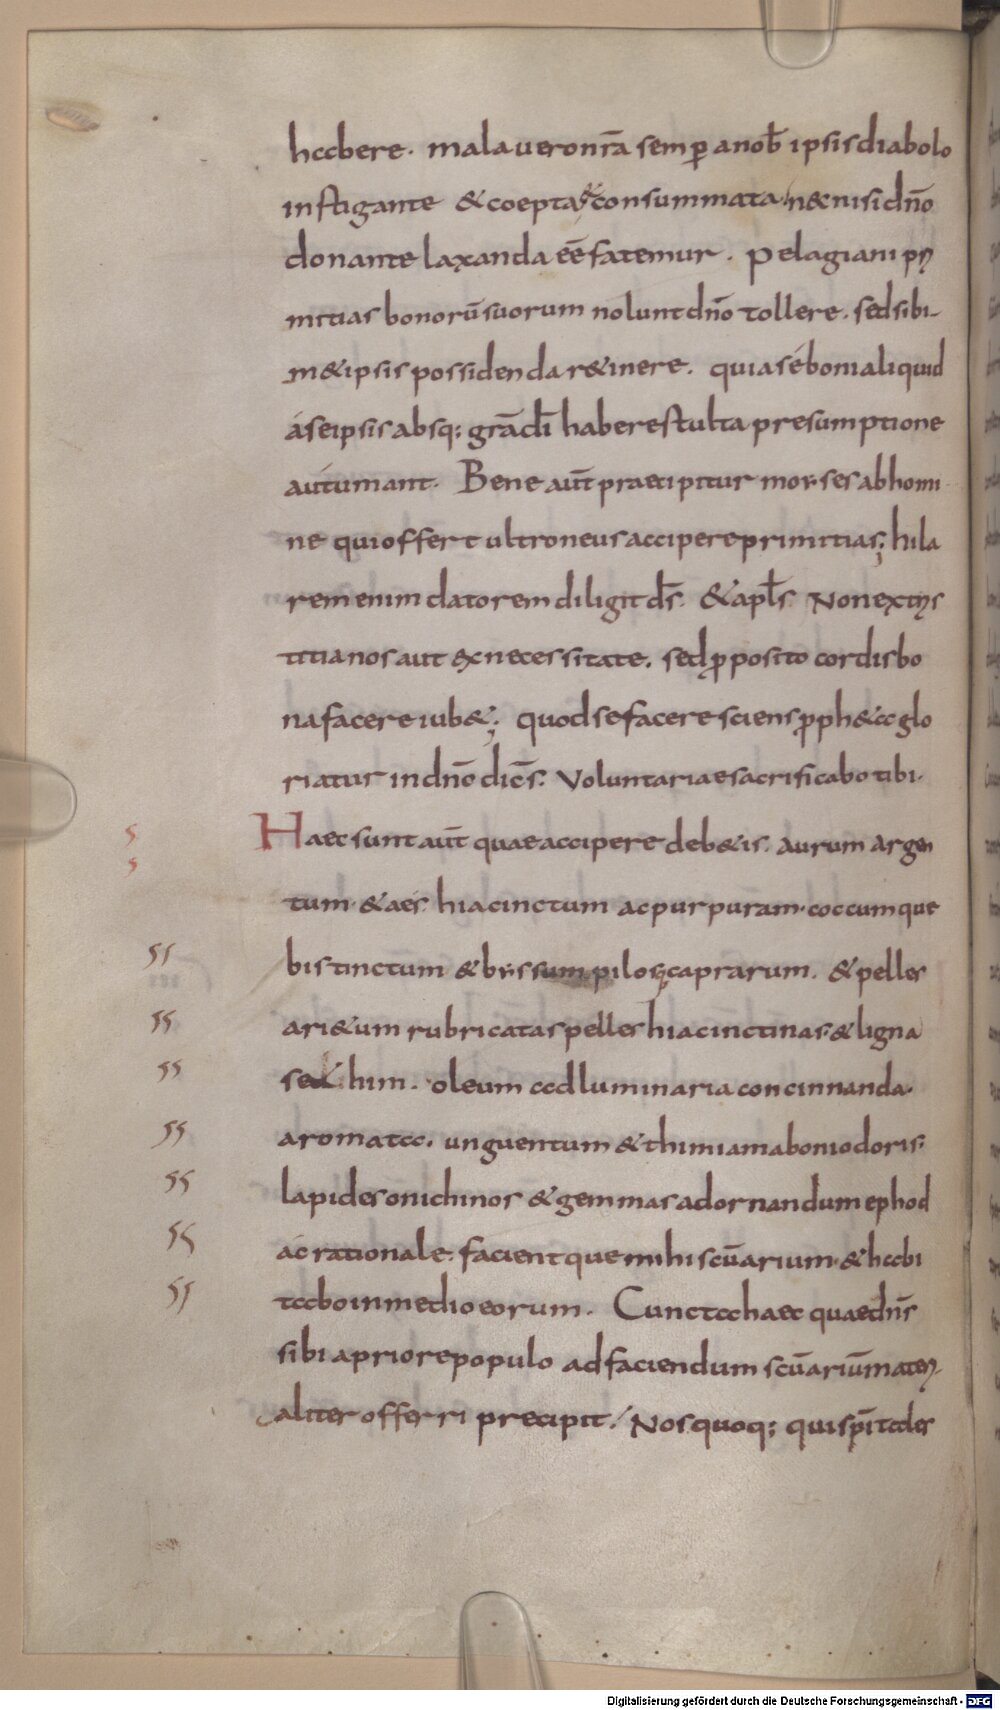 habere. mala uero nr̄a semꝑ a nob̄ ipsis diabolo
instigante & coepta & consummata n& nisi dn̄o
donante laxanda eē fatemur. Pelagiani pri
mitias bonorū suorum nolunt dn̄o tollere. sed sibi
m& ipsis possidenda r&inere. quia sé boni aliquid
á se ipsis absq; grā di̅ habere stulta presumptione
autumant. Bene aut̄ praecipitur moyses ab homi
ne qui offert ultroneus accipere primitias; hila
rem enim datorem diligit ds̄. & apls̄ Non ex tris
titia nos aut ex necessitate. sed ꝓposito cordis bo
na facere iub&; quod se facere sciens ꝓph&a glo
riatur in dn̄o dicēs. Voluntariae sacrificabo tibi.
Haec sunt aut̄ quae accipere deb&is. aurum argen
tum & aes. hiacinctum ac purpuram. coccumque
bis tinctum & byssum pilosq; caprarum. & pelles
ari&um rubricatas pelles hiacinctinas & ligna
s&him. oleum ad luminaria concinnanda.
aromata. unguentum & thimiama boni odoris;
lapides onichinos & gemmas ad ornandum ephod
ac rationale. facientque mihi scūarium. & habi
tabo in medio eorum. Cuncta haec quae dn̄s
sibi a priore populo ad faciendum scūariūm materi
aliter offerri precipit. Nos quoq; qui spīitales
Digitalisierung gefördert durch die Deutsche Forschungsgemeinschaft - DFG